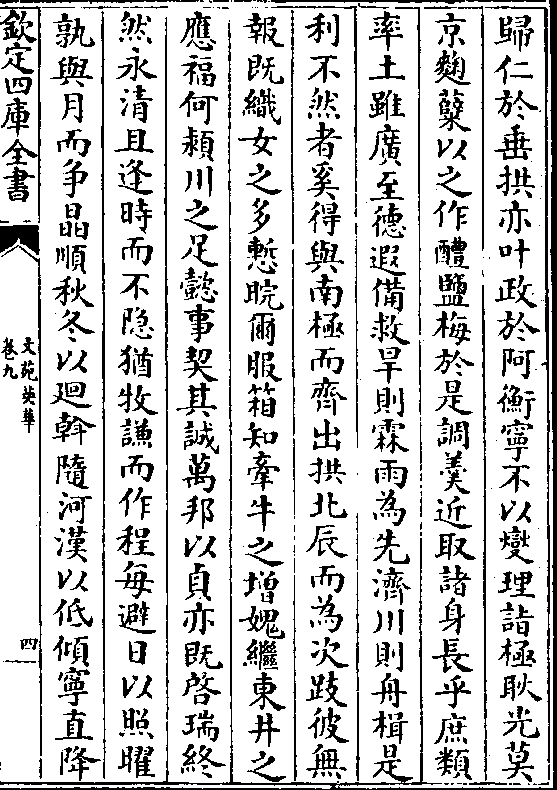 歸仁於垂拱亦叶政於阿衡寧不以燮理詣極耿光莫
京麴糵以之作醴鹽梅於是調羮近取諸身長乎庶類
率土雖廣至德遐備救旱則霖雨為先濟川則舟楫是
利不然者奚得與南極而齊出拱北辰而為次跂彼無
報既織女之多慙睆爾服箱知牽牛之增媿繼東井之
應福何潁川之足懿事契其誠萬邦以貞亦既啓瑞終
然永清且逢時而不隐猶牧謙而作程每避日以照曜
孰與月而争晶順秋冬以廻斡隨河漢以低傾寧直降
欽定四庫全書
文苑英華
卷九
四